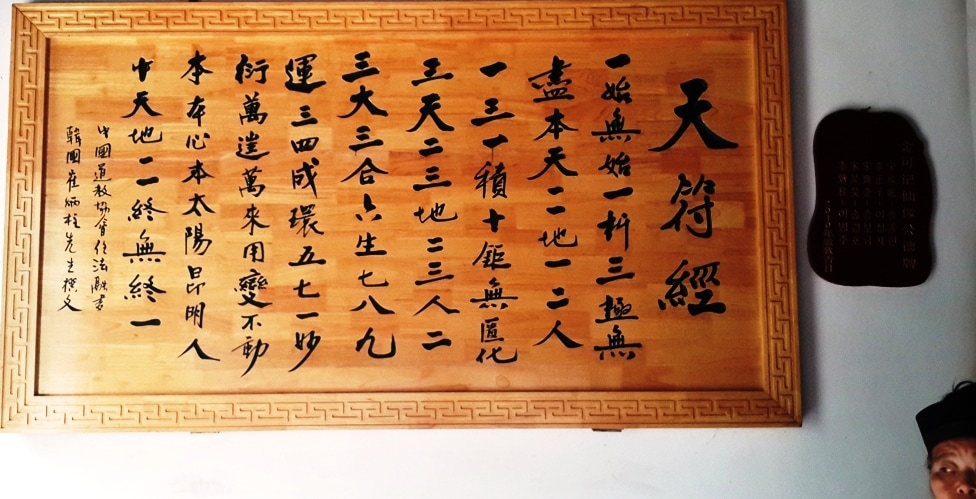 天符經
一始無始一析三極無
盡本天一一地一二人
一三一積十鉅無匱化
三天二三地二三人二
三大三合六生七八九
運三四成環五七一妙
衍萬往萬來用變不動
本本心本太陽昂明人
中天地一一終無終一
中國道教協會任法融書
韓國崔炳柱先生撰文